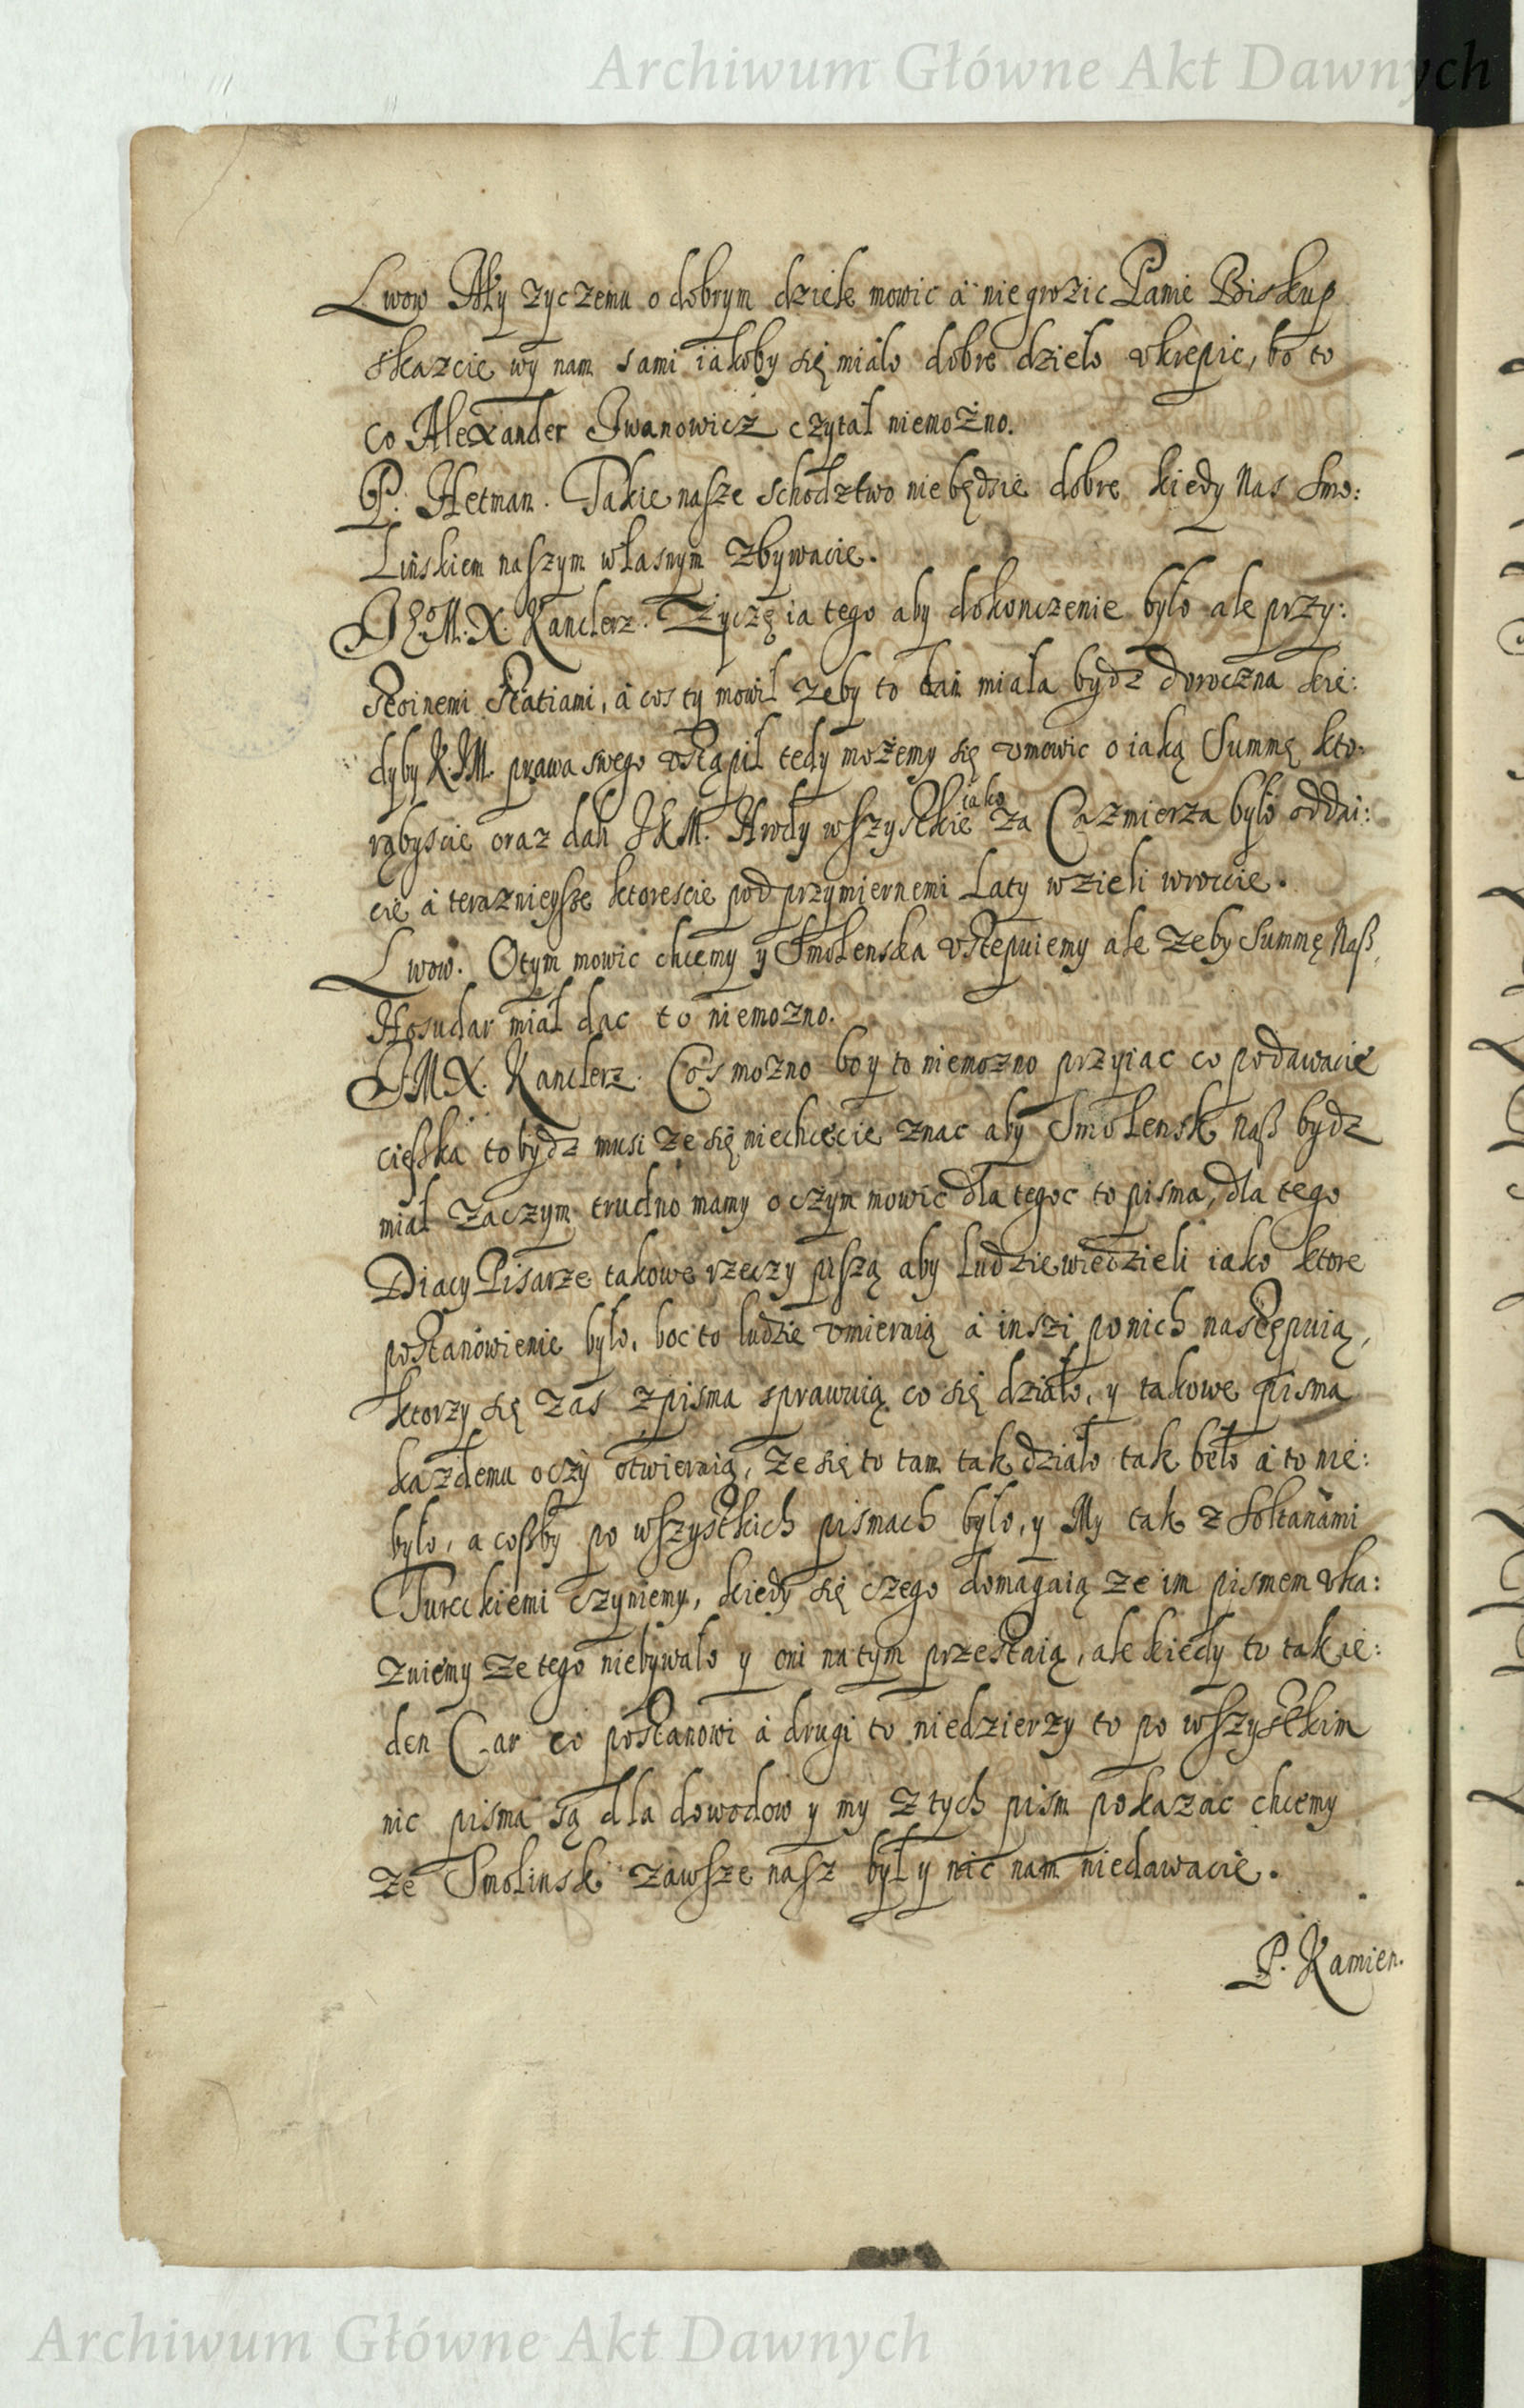 Archiwum Główne Akt Dawnych
Lwow My zyczemy o dobrym dziele mowic á niegrozic Panie Biskup
skazcie wy nam sami iakoby się miało dobre dzieło vkrepic, bo to
co Alexander Iwanowicz czytał niemożno.
P. Hetman. Takie nasze schodztwo niebędzie dobre kiedy nas Smo:
Linskiem naszym własnym zbywacie.
JEo M. X. Kanclerz. Zyczę ia tego aby dokonczenie było ale przy:
stoinemi statiami, á cos ty mowił zeby to dań miała bydz doroczna kie:
dyby K.JM. prawa swego vstąpił tedy możemy się vmowic o iaką Summę kto:
rąbyscie oraz dali JKM. Hrody wszystkie iako za Cazmierza było oddai:
cie á teraznieysze ktorescie pod przymiernemi Laty wzieli wroccie.
Lwow. Otym mowic chcemy y Smolenska vstepuiemy ale zeby Summę Naß
Hosudar miał dac to niemozno.
JM X. Kanclerz. Cos mozno bo y to niemozno przyiac co podawacie
cięszka to bydz musi ze się niechcecie znac aby Smolensk naß bydz
miał zaczym trudno mamy o czym mowic dla tegoc to pisma, dla tego
Diacy Pisarze takowe rzeczy piszą aby ludzie wiedzieli iako ktore
postanowienie było, boc to ludzie vmieraią á inszi ponich następuią,
ktorzy się zas z pisma sprawuią co się działo, y takowe pisma
każdemu oczy otwieraią, ze się to tam tak działo tak beło á to nie:
było, a coßby po wszystkich pismach było, y My tak z Sołtanami
Tureckiemi czyniemy, kiedy się czego domagaią ze im pismem vka:
zuiemy ze tego niebywało y oni na tym przestaią, ale kiedy to tak ie:
den Car co postanowi á drugi to niedzierzy to po wszystkim
nic pisma są dla dowodow y my z tych pism pokazac chcemy
ze Smolinsk zawsze nasz był y nic nam niedawacie.
P. Kamien.
Archiwum Główne Akt Dawnych